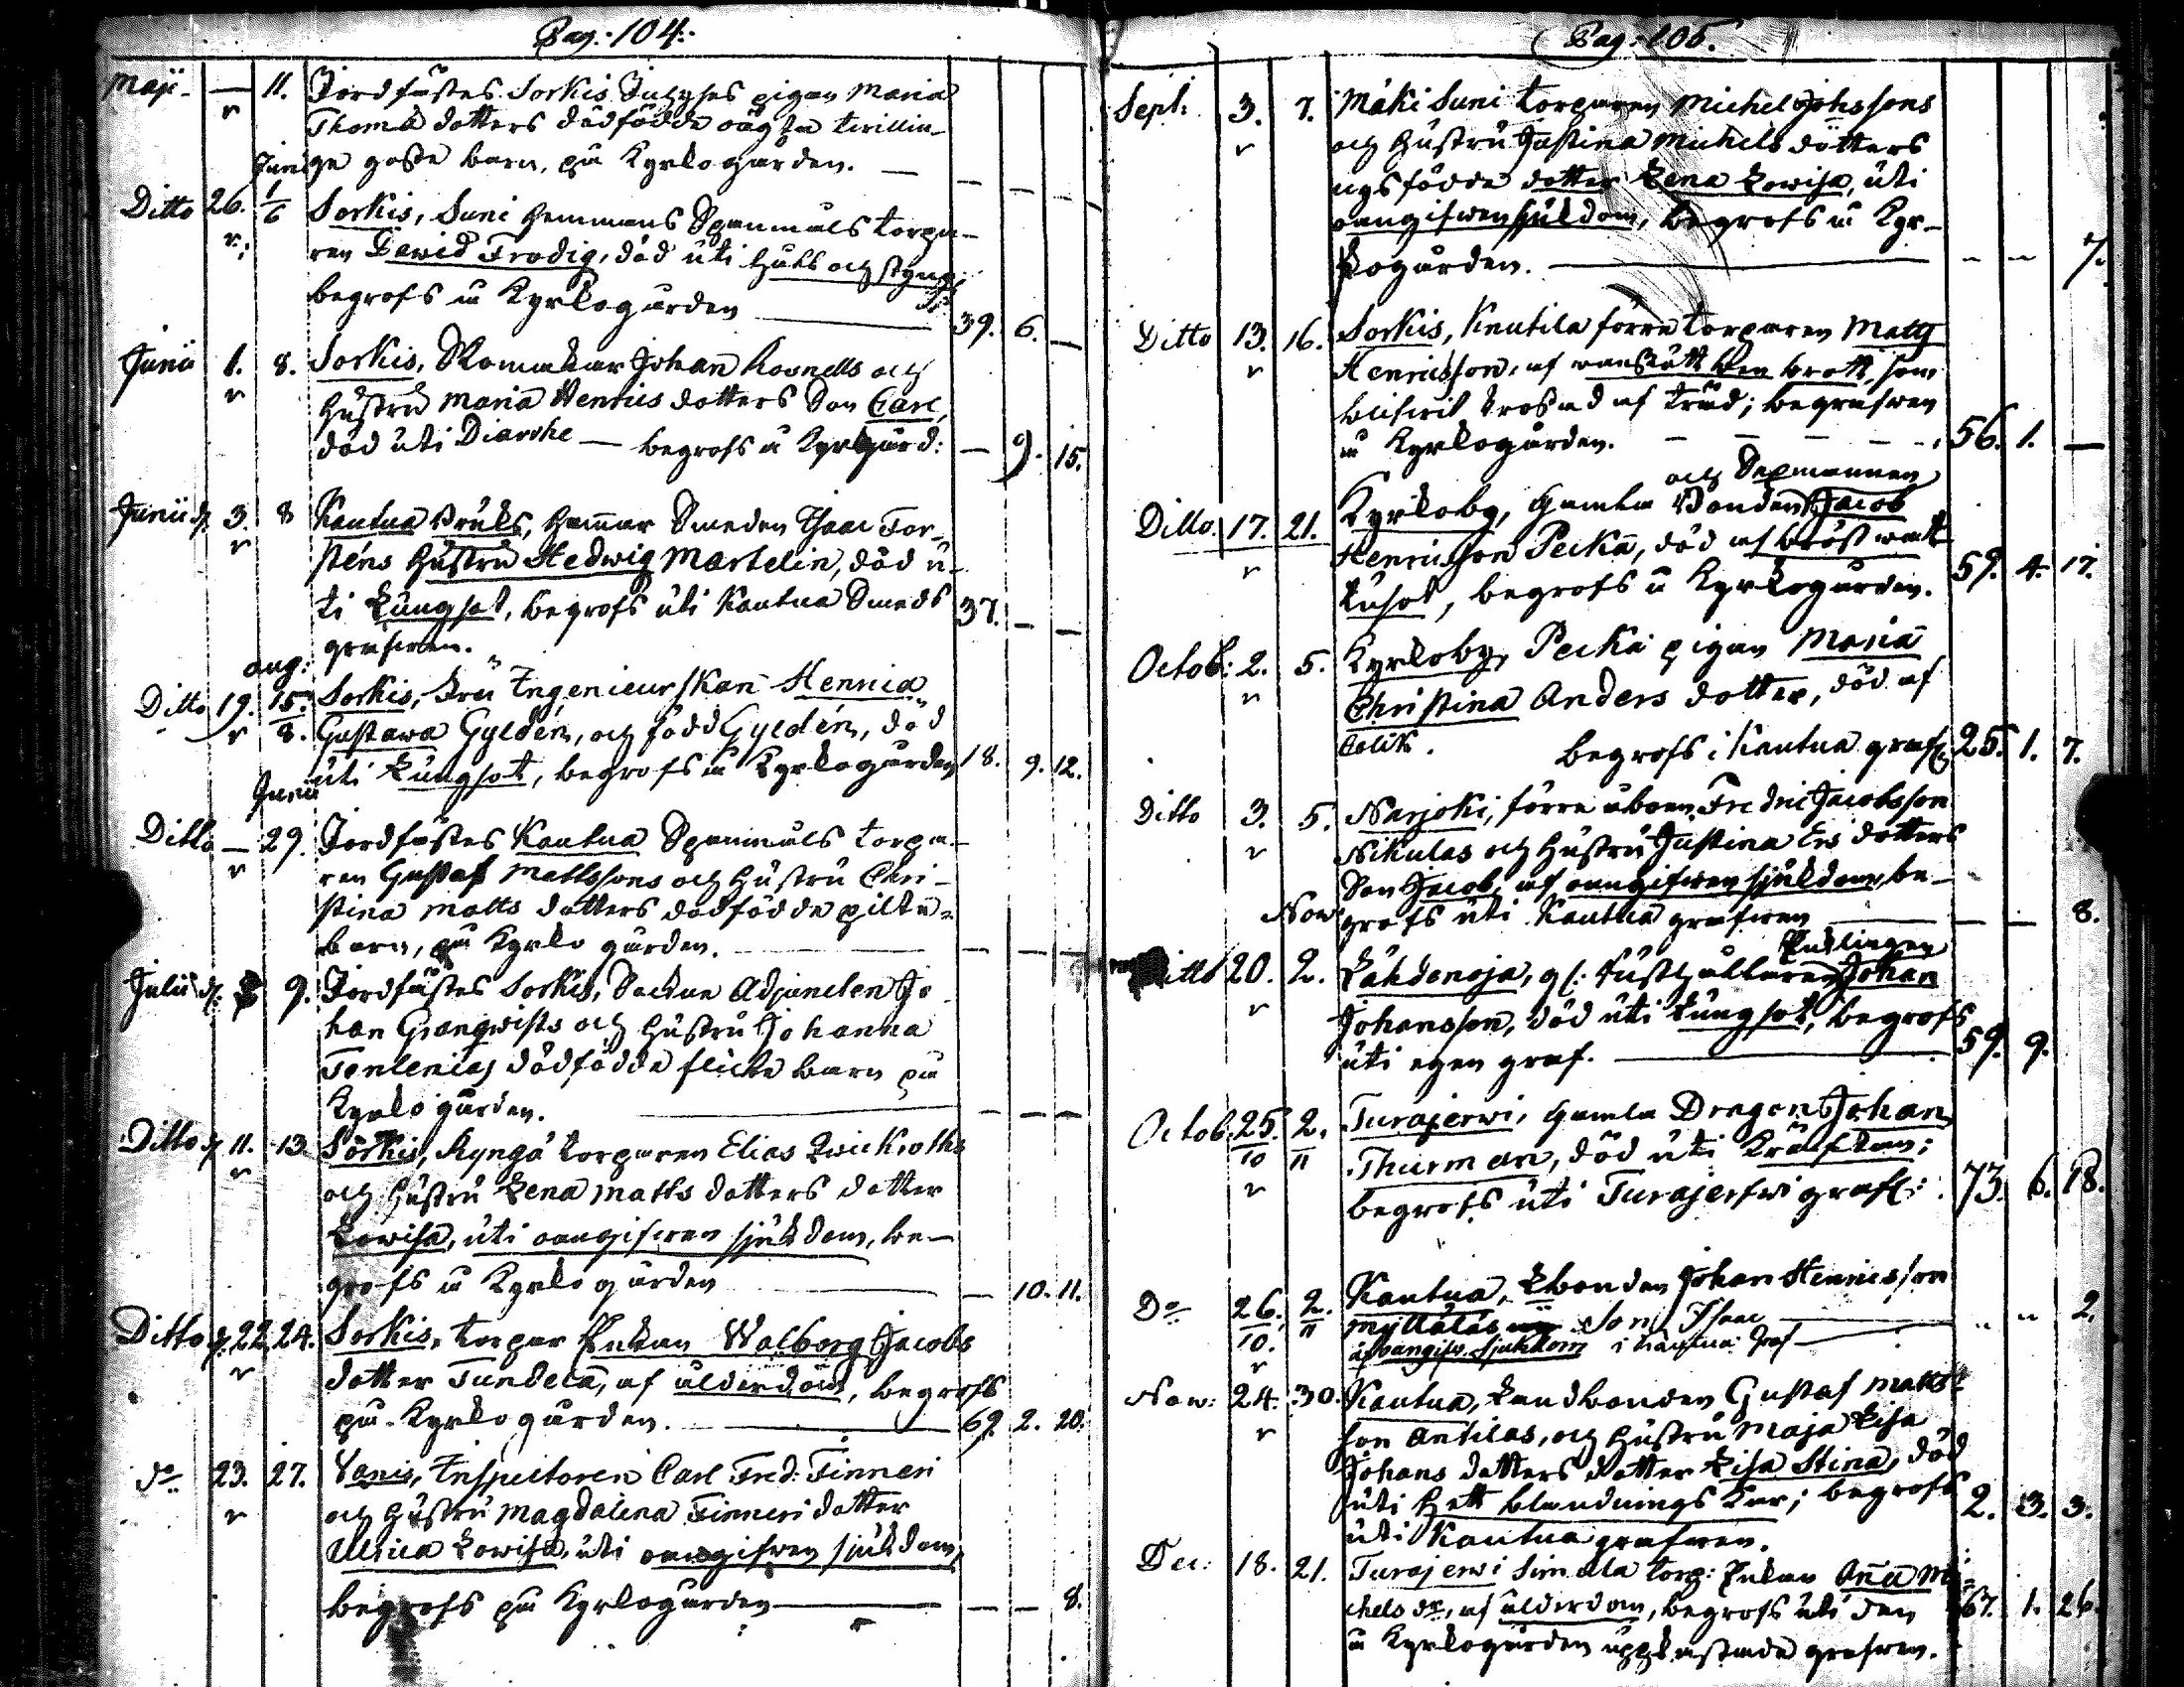 Pag: 104:
Maji — 11. Jordfästes Sorkis Juxyses pigan Maria
r Thomæ dotters dödfödde oägta twillin-
ge gosse barn, på Kyrkogården. —
Junii
Ditto 26. 1/6 Sorkis, Suni hemmans Spanmåls torpa-
r. ren Dawid Frodig, död uti håll och styng
begrofs å Kyrkogården — 39. 6. —
Junii 1. 8. Sorkis, Skomakar Johan Rosnells och
r hustru Maria Henrics dotters Son Carl,
död uti Diarrhe — begrofs å Kyrkogård: — 9. 15.
Junii d. 3. 8 Kautua Bruks, hammar Smeden Isaac Tor-
r sténs hustru Hedwig Martelin, död u-
ti Lungsot, begrofs uti Kautua Smeds 37. — —
grafwen.
aug:
Ditto 19. 15. Sorkis, Fru Ingenieurskan Hennica
r 8. Gustawa Gyldén, och född Gyldén, död
uti Lungsot, begrofs å Kyrkogården 18. 9. 12.
Junii
Ditto — 29. Jordfästes Kautua Spanmåls torpa-
r ren Gustaf Mattssons och hustru Chri-
stina Matts dotters dödfödde pilte-
barn, på Kyrko gården. — — — —
Julii d. 9. Jordfästes Sorkis, Sockne Adjuncten Jo
han Granqwists och hustru Johanna
Tenlenias dödfödde flicke barn på
Kyrko gården. — — — —
Ditto d 11. 13. Sorkis, Ryngö torparen Elias Qwickroths
r och hustru Lena Matts dotters dotter
Lowisa, uti oangifwen sjukdom, be-
grofs å Kyrko gården — — 10. 11.
Ditto d. 22. 24. Sorkis, torpar Enkan Walborg Jacobs
r dotter Tundela, af ålderdom, begrofs
på Kyrko gården. — 69. 2. 20.
do 23. 27. Vanis, Inspectoren Carl Fred: Finneri
r och hustru Magdalena Finneri dotter
Ulrica Lowisa, uti oangifwen sjukdom,
begrofs på Kyrkogården — — — 8.
Pag: 105.
Sept: 3. 7. Mäki Suni torparen Michel Johssons
r och hustru Justina Michels dotters
nysfödde dotter Lena Lowisa, uti
oangifwen sjukdom, begrofs å Kyr-
kogården. — — — 7.
Ditto 13. 16. Sorkis, Knutila förre torparen Matts
r Henricsson, af wanskött ben brott, som
blifwit krosad af träd; begrafwen
å Kyrkogården. — — — — 56. 1. —
och Sexmannen
Ditto. 17. 21. Kyrkoby, Gamla Bonden Jacob
r Henricsson Pecka, död af bröst wärk
kusot, begrofs å Kyrkogården. 59. 4. 17.
Octob: 2. 5. Kyrkoby, Pecka pigan Maria
r Christina Anders dotter, död af
Colik. begrofs i Kautua graf 25. 1. 7.
Ditto 3. 5. Narjoki, förre åboen Fredric Jacobsson
r Nikulas och hustru Justina Ers dotters
Son Jacob, af oangifwen sjukdom, be-
grofs uti Kautua grafwen — — — 8.
Now
Enklingen
Ditto 20. 2. Lähdenoja, gl: Johan
r Johansson, död uti Lungsot, begrofs
uti egen graf. — 59. 9.
Octob. 25. 2. Turajerwi, Gamla Dragon Johan
10 11 Thurman, död uti Kräftan;
r begrofs uti Turajerfwi graf: 73. 6. 18.
Do 26. 2. Kautua, Lbonden Johan Henricsson
10. 11 Myllälas Son Isaac — " " 2.
r af oangifw. Sjukdom i Kautua Graf
Now: 24. 30. Kautua, Landbonden Gustaf Matts-
r son Antilas, och hustru Maja Lisa
Johans dotters dotter Lisa Stina, död
uti Hett blandnings Kar; begrofs 2. 3. 3.
uti Kautua grafwen.
Dec: 18. 21. Turajerwi Simola torp: Enkan Anna Mi-
chels dr, af ålderdom, begrofs uti den 67. 1. 26.
å Kyrkogården uppkastade grafwen.